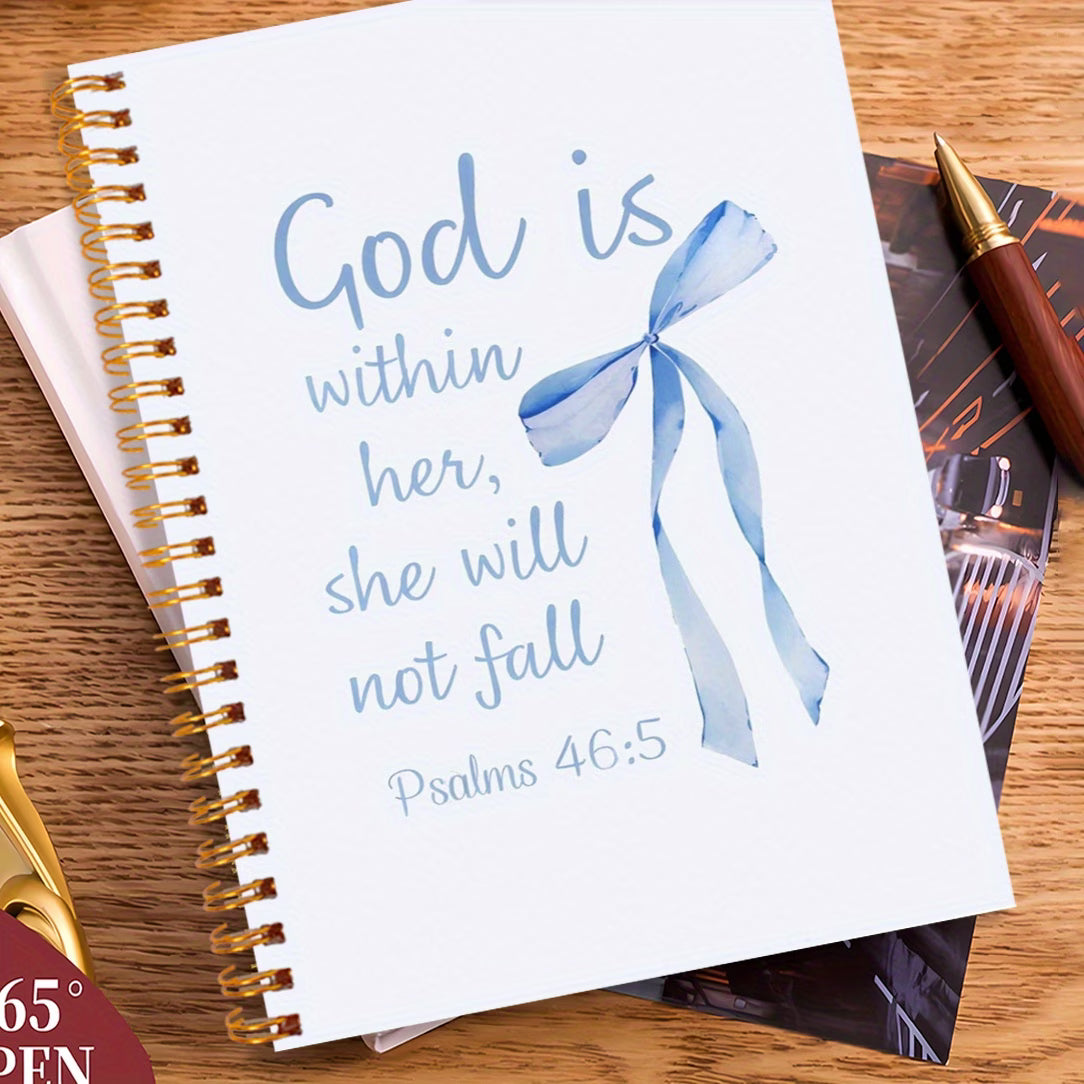 God is
within
her,
she will
not fall
Psalms 46:5
65°
PEN